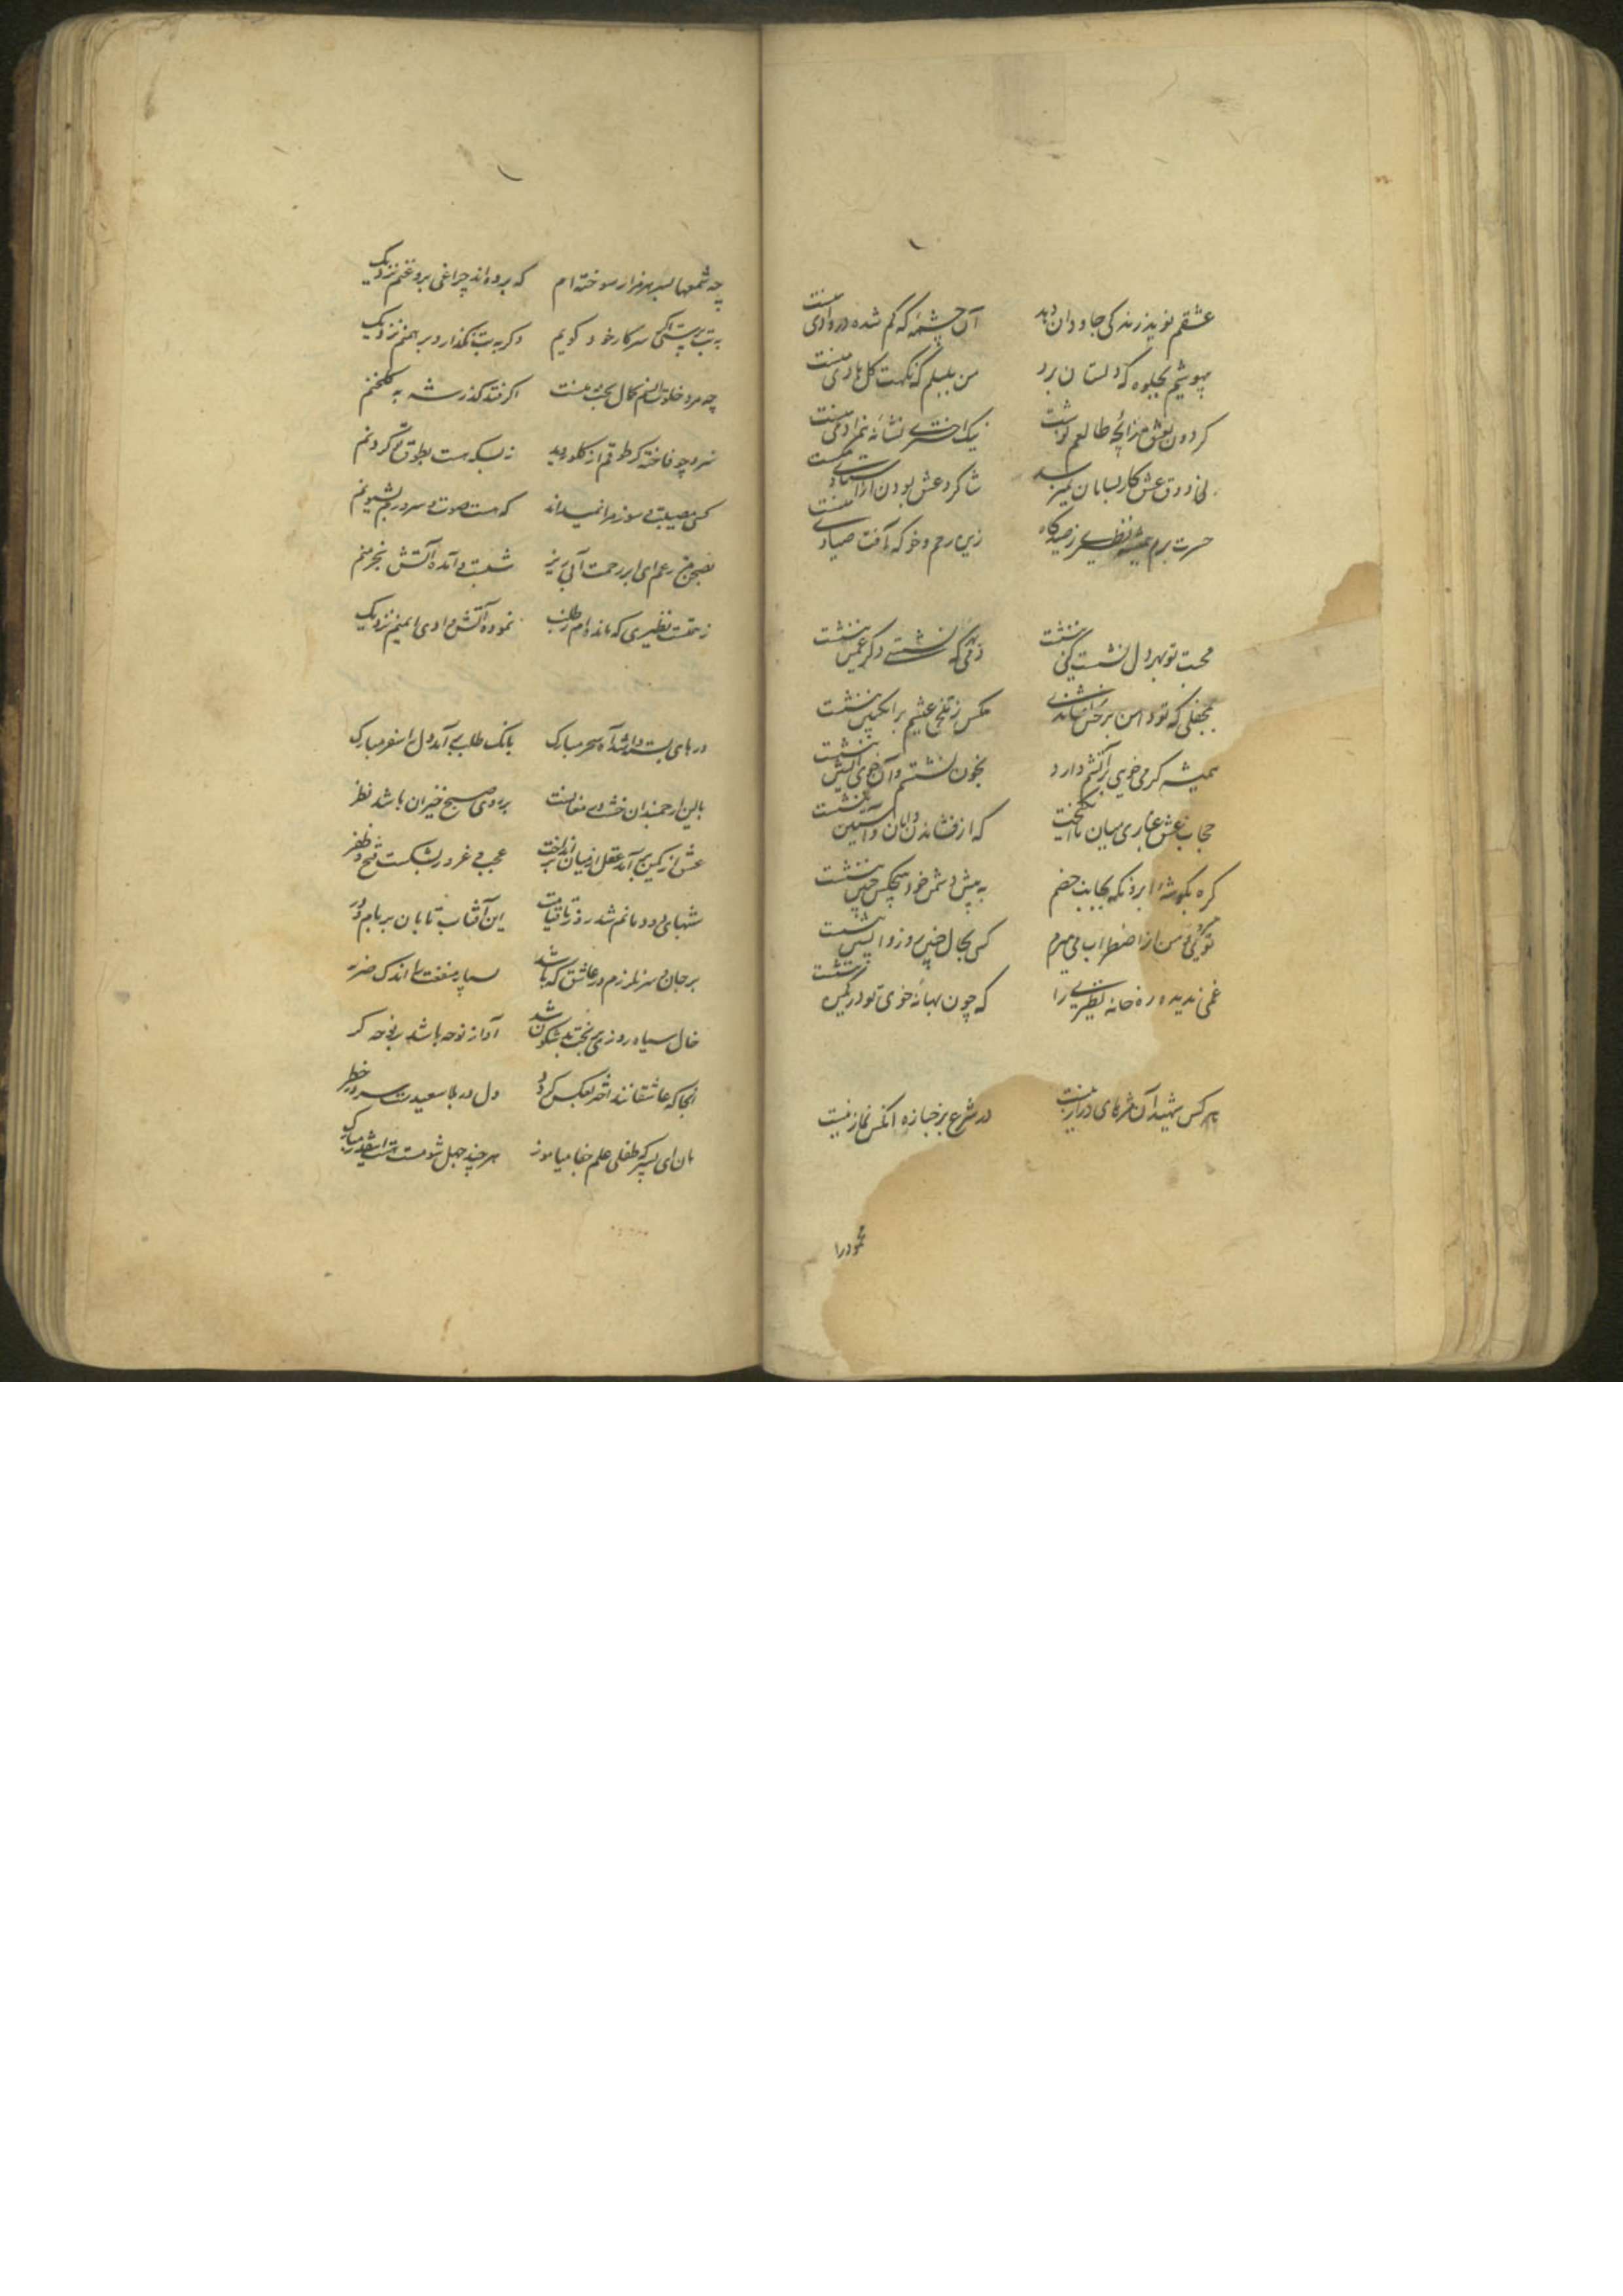 عشقم نوید زندگی جاودان دهد آن چشمه که گم شده در وادی منست
بیهوشیم بجلوه که دلستان برد من بلبلم که نکهت گل هادی منست
کردون نقش زایچه طالعم نوشت نیک اختری نشانه نمرادی منست
بی ذوق عشق کار بسامان نمیرسد شاکرد عشق بودن استادی منست
حسرت برم همیشه نظیری ز صیدکاه زین رحم و خو که آفت صیادی منست
محبت تو بهر دل نشست کین ننشست دمی که نشستی دگر غمین ننشست
بمحفلی که تو دامن بر نشاندی مکس ز تلخی عیشم بر انکبین ننشست
همیشه کرمی خوی بر آتشم دارد بخون نشستم و آن خوی آتشین ننشست
حجاب عشق غباری میان ما انکیخت که از فشاندن دامان و آستین ننشست
کره بکوشه ابرو نکه بجانب خصم به پیش دشمن خود هیچکس چنین ننشست
تو من از اضطراب می میرم کس بحال چنین روز واپسین ننشست
غمی ندیده در خانه نظیری را که چون بهانه خوی تو در کمین ننشست
هر کس شهید آن مژه های دراز نیست در شرع بر جنازه آنکس نماز نیست
محمود را
چه شمعها بسر هر مزار سوخته ام که برده اند چراغی بروغنم نزدیک
به بت پرستی سر کار خود کویم وکر به بت نکذارد برهمنم نزدیک
چه مرد خلوت انسم کمال بخت منست اکر فتد کذر شه به کلخنم
سرو چو فاخته کر طوقم از کلو روید ز بسکه هست بطوق تو کردنم
کسی مصیبتی سوز مرا نمیداند که هست صوت سرودم بشیونم
بصحن مزرعم ای ابر رحمت آبی ریز شعلت آمده آتش بخرمنم
ز همتست نظیری که مانده ام ز طلب نموده آتش وادی ایمنم نزدیک
درهای بسته وا شد آه سحر مبارک بانک طلب بر آمد دل را سفر مبارک
بالین ارجمندان خشت در مغانست بر روی صبح خیزان باشد نظر
عشق از کمین برآمد عقل از میان برانداخت عجب غرور بشکست فتح و ظفر
شبهای دودمانم شد روز تا قیامت این آفتاب تابان بر بام و در
بر جان و سر نلرزم در عاشقی که باشد بسیار منفعت را اندک ضرر
خال سیاه روزی بر بخت بد شکون شد آواز نوحه باشد بر نوحه کر
آنجا که عاشقانند اختر بعکس کردد دل در بلا سعیدست سر در خطر
هان ای پسر که طفلی علم خفا میاموز هر چند جهل شومست هست اینقدر مبارک